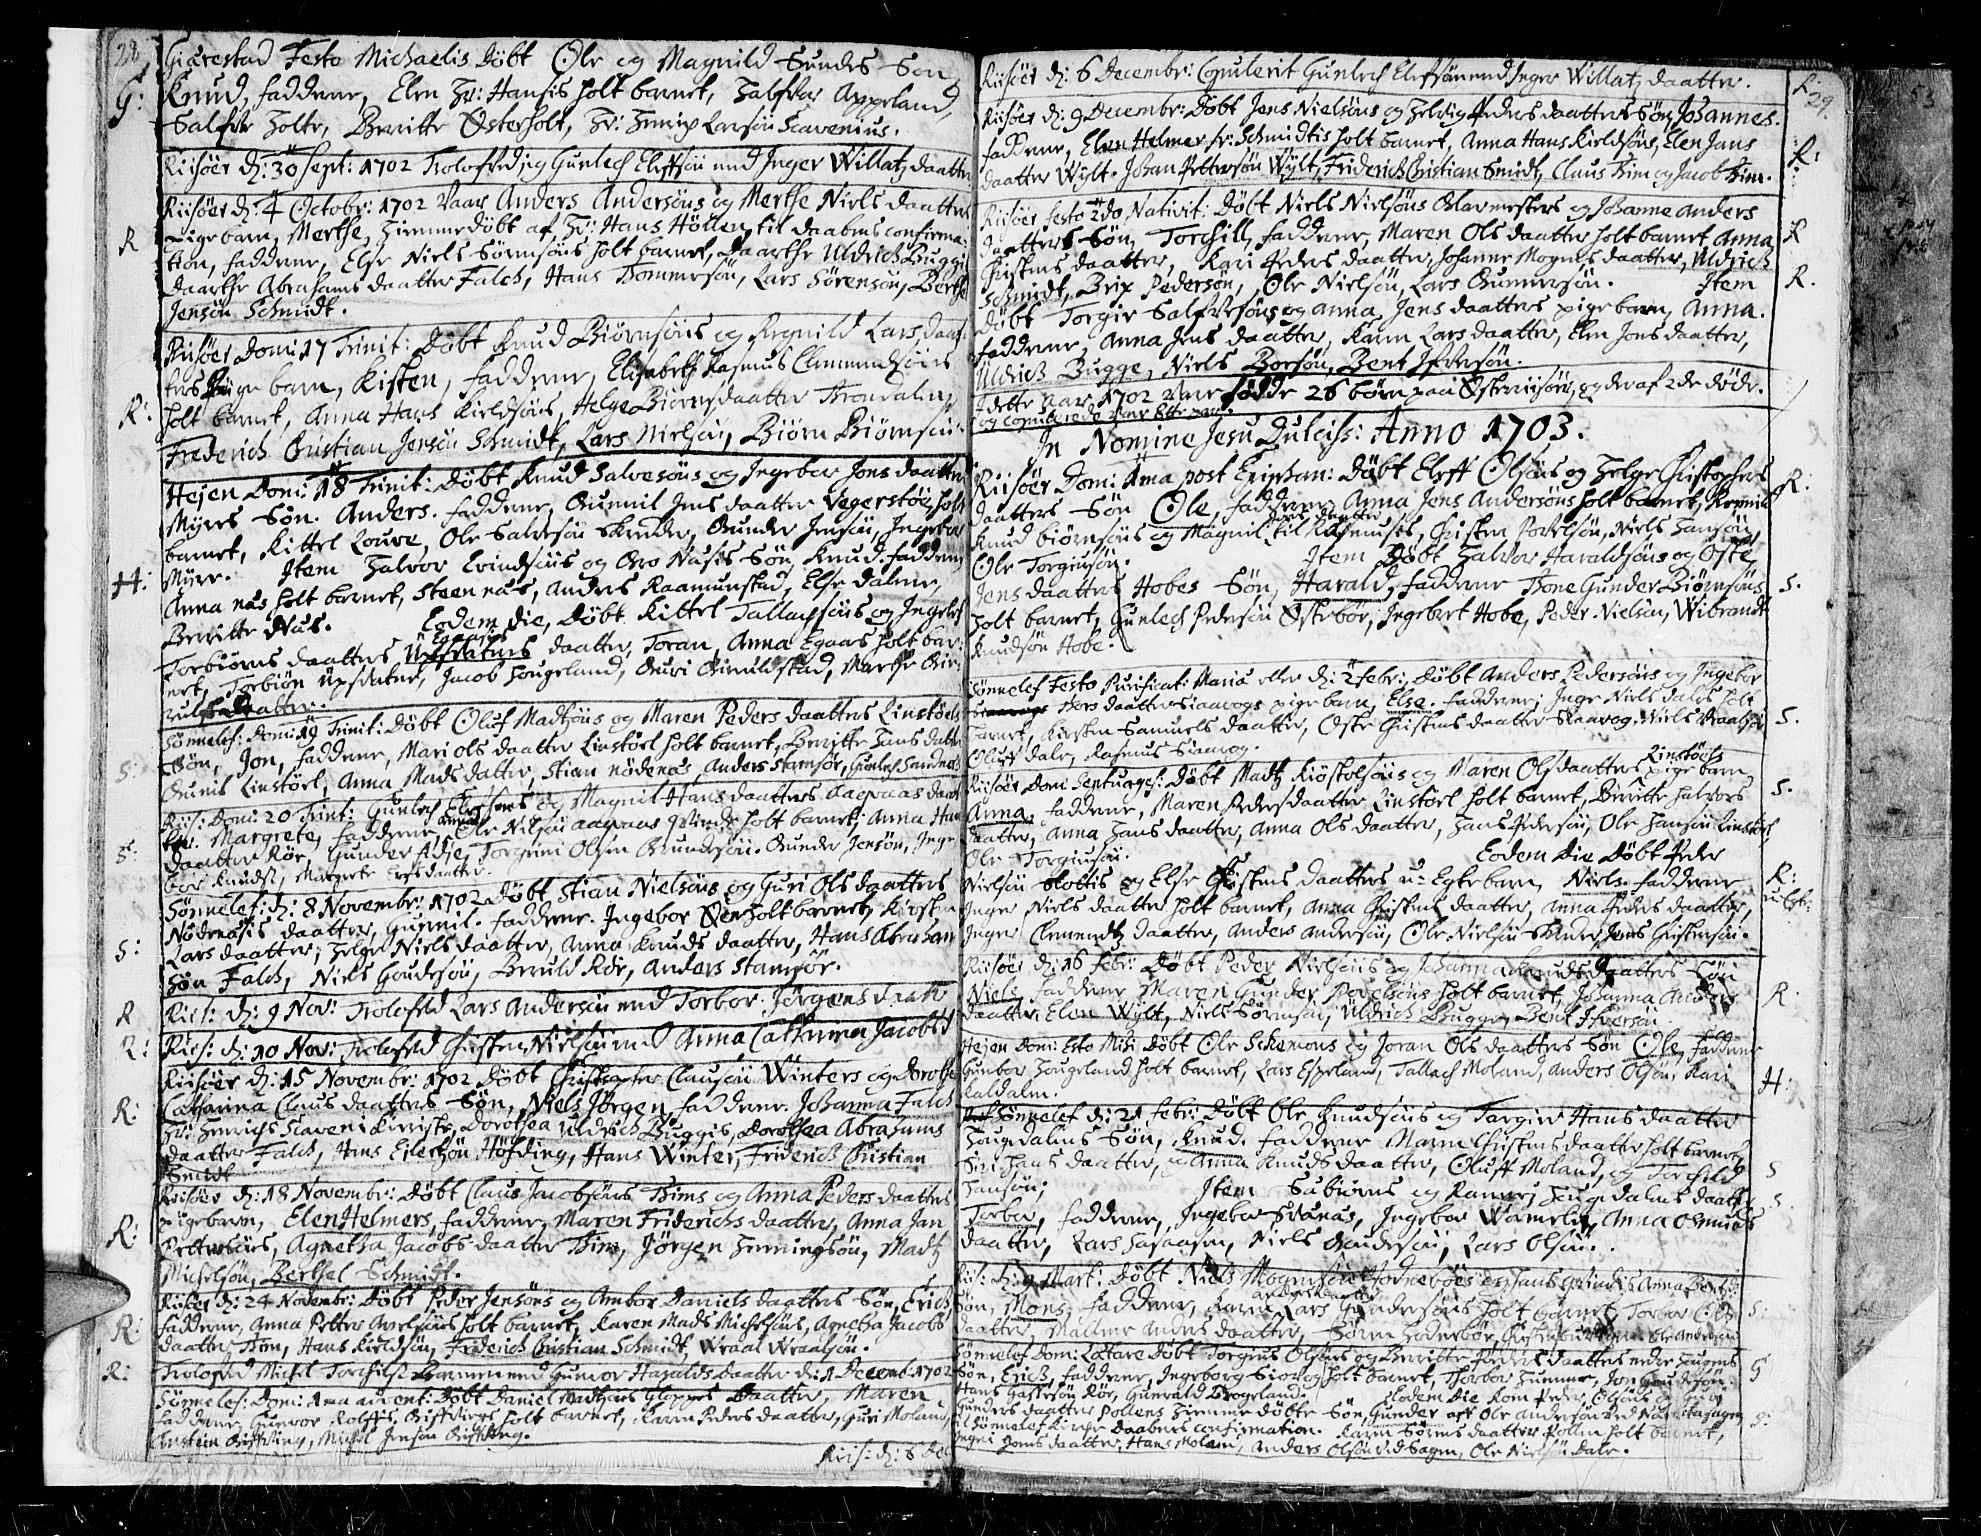 28
G: Gierestad Festo Michaelis Döbt Ole og Magnild Sundes Søn
Knud, faddere, Elen Hr: Hansis holt barnet, Halfvor Appeland,
Salfve Holte, Berritte Østerholt, Hr: Henrix Larsön Scavenius.
Riisöer d: 30 Sept: 1702 Trolofved, Gunlech Elefsön med Inger Willatz daatter
Riisöer d: 4 Octobr: 1702 vaar Anders Andersöns og Merthe Niels daatters
pigebarn, Merthe, hiemmedöbt af Hr: Hans Höllen, til daabens confirma-
R tion, faddere, Else Niels Sörensöns holt barnet, Daarthe Uldrich Buggis
Daarthe Abrahams daatter Falch, Hans Tommesön, Lars Sörensön, Berthel
Jensön Schmidt.
Riisöer Domi: 17 Trinit: döbt Knud Biörnsöns og Regnild Lars daat-
ters Pige barn, Kisten, faddere, Elisabeth Rasmus Clemmendsöns
R: holt barnet, Anna Hans Kieldsöns, Helge Biörnsdaatter Trondalen,
Frederich Christian Jensön Schmidt, Lars Nielsön, Biörn Biörnsön.
Hejen Domi: 18 Trinit: Döbt Knud Salvesöns og Ingebor Jons daatter
Myres Sön. Anders. faddere, Gunnil Jens daatter Vegerstöl, holt
barnet, Kittel Louve, Ole Salvesön Skender, Gunder Jensön, Ingebor
Myre. Item Halvor Evindsöns og Aaro Nasis Sön Knud. faddere
H: Anna næs holt barnet, Steen næs, Anders Raamunstad, Else dalene,
Berritte Næs. Eodem die, Döbt Kittel Tallachsöns og Ingebor
Egaases
Torbiörns daatters daatter, Joran, Anna Egaas holt bar-
net, Torbiön Upsdatne, Jacob Hougeland, Guri Grimildstad, Marthe
Sönnelef: Domi: 19 Trinit: Döbt Oluf Madtzöns og Maren Peders daatters Linstöels
S: Sön, Jon, faddere, Mari ols daatter Linstöel holt barnet, Berritte Hans datter
Gunil Linstöel, Anna Mads datter, Stian nödenæs, Anders Stamsöe, Gunlech Sandnæs
Riis: Domi 20 Trint: Gunlech Elefsens og Magnil Hans daatters Aagvaas daat-
ter. Margrete, faddere, Ole Nilsön aagvaas qvinde holt barnet, Anna Hans
S: daatter Rör, Gunder Adje, Torgrim Olsen Gundersön. Gunder Jensön, Inge-
bor Knudz, Margrete daatter.
Sönnelef: d: 8 Novembr: 1702 Döbt Stian Nielsöns og Guri Ols daatters
Nödenæsis daatter, Gunnil. faddere. Ingebor Øen holt barnet, Kirsten
S: Lars daatter, Helge Niels daatter, Anna Knuds daatter, Hans Abraham
Sön Falch, Niels Goudesön, Beruld Rör, Anders Stamsöe.
R Riis: d: 9 Nov: Trolofved Lars Andersön med Torbor Jörgens daatter
R: Riis: d: 10 Nov: Trolofved Christen Nielsön med Anna Cathrina Jacobsd
Riisöer d: 15 Novembr: 1702 Döbt Christopher Clausön Winters og Dorothe
R: Catharina Claus daatters Sön, Niels Jörgen, faddere. Johanna Falch
Hr: Henrichs Scaveni Kieriste, Dorothea Uldrich Buggis, Dorothea Abrahams
daatter Falch, Hans Eilertzön Höfding, Hans Winter, Friderich Christian
Smidt
Riisöer d: 18 Novembr: Döbt Claus Jacobsöns Thims og Anna Peders daatters
R: pigebarn, Elen Helmers, faddere, Maren Friderichs daatter, Anna Jan
Pettersöns, Agnetha Jacobs daatter Thim, Jörgen Henningsön, Madtz
Michelsön, Berthel Schmidt.
Riisöer d: 24 Novembr: Döbt Peder Jensöns og Anbor Daniels daatters Sön, Erich
R: faddere, Anna Petter Axelsöns holt barnet, Karen Mads Michelsöns, Agnetha Jacobs
daatter Thim, Hans Kieldsön, Frederich Christian Schmidt, Wraal Wraalsön.
R: Trolofved Michel Torchilsön med Gunvor Haralds daatter d: 1 Decemb: 1702
Sönnelef: Domi: 1ma advent: Döbt Daniel Madtzöns Gloppes Daatter, Maren
faddere, Gunvor Rolfs, holt barnet, Karen Peders daatter, Guri Moland,
Michel Jensön
Riis: d: 6 De
29.
Riisöer d: 6 Decembr: Copulerit Gunlech Elefsön med Inger Willatz daatter. R:
Riisöer d: 9 Decembr: Döbt Jens Nielsöns og Helvig Peders daatters Sön Johannes.
faddere, Elen Helmer Hr: Schmidtis holt barnet, Anna Hans Kieldsöns, Elen Jans R:
daatter Wylt. Johan Pettersön Wylt, Friderich Christian Smidt, Claus Thim og Jacob Thim.
Riisöer festo 2do Nativit: Döbt Niels Nielsöns Glasmesters og Johanne Anders
daatters Sön, Torchill, faddere, Maren Ols daatter holt barnet, Anna R
Christens daatter, Kari Peders daatter, Johanne Mognes daatter, Uldrich
Schmidt, Brix Pedersön, Ole Nielsön, Lars Gunnersön. Item R.
döbt Torgir Salfvesöns og Anna Jens daatters pigebarn, Anna.
faddere Anna Jens daatter, Karen Lars daatter, Elen Jens daatter,
Uldrich Bugge, Niels Borsön, Bent Ifversön.
I dette Aar 1702 vare födde 26 börn paa Østeriisöer, og deraf 2de döde.
og copulerede vare Ette par.
In Nomine Jesu Dulciss: Anno 1703.
Riisöer Dom: 1ma post Epiphan: Döbt Eleff Olsöns og Helge Christophers
daatters Sön Ole, faddere Anna Jens Andersöns holt barnet, R:
Knud biörnsöns og Magnil til Rasmuses, Christen Povelsön, Niels Hansön
Ole Torgiusön. Item Döbt Halvor Haraldsöns og Oste
Jens daatters Hobes Sön, Harald, faddere Tone Gunder Biörnsöns S.
holt barnet, Gunlech Pedersön Östebör, Ingebret Hobe, Peder Nielsön, Wibrandt
Knudsön Hobe.
Sönnelef Festo Purificat: Mariæ eller d: 2 febr: Döbt Anders Pedersöns og Ingebor
Thors daatters Siavogs pigebarn, Else. faddere, Inge Niels dales holt
barnet, Kirsten Samuels daatter, Oste Christens daatter Skaarog, Niels S.
Oluff dale, Rasmus Siavog.
Riisöer Domi Septuages: Döbt Madtz Kiöstolsöns og Maren Olsdaatters Linstöels pige barn
Anna, faddere, Maren Pedersdaatter Linstöel holt barnet, Berritte halvors S.
daatter, Anna Hans daatter, Anna Ols daatter, Hans Pedersön, Ole Hansön Linstöel,
Ole Torgiusön. Eodem Die Döbt Peder
Nielsön Slottis og Else Christens daatters u-Egtebarn Niels. faddere R:
Inger Niels daatter holt barnet, Anna Christens daatter, Anna Peders daatter, u: Egt:
Inger Clemendtz daatter, Anders Andersön, Ole Nielsön, Jens Christensön.
Riisöer d: 16 Febr: Döbt Peder Nielsöns og Johanna Knuds daatters Sön
Niels faddere Maren Gunder Povelsöns holt barnet, Johanna Anders R.
daatter, Elen Wylt, Niels Sörensön, Uldrich Bugge, Bent Ifversön.
Hejen Domi: Esto Mihi Döbt Ole Eckensons og Joran Ols daatters Sön Ole, faddere
Gunbor Hougeland holt barnet, Lars Espeland, Tallach Moland, Anders Olsön, Kari H:
Kaldalm.
Sönnelef d: 21 febr: Döbt Ole Knudsöns og Torgier Hans daatter
Hougedalens Sön, Knud. faddere Maren Christens daatter holt barnet,
Siri Hans daatter, og Anna Knuds daatter, Oluff Moland, og Torchild S
Hansön; Item Sabiörns og Hougedalens daatter S.
Torbor, faddere, Ingebor Svanæs, Ingebor Wormeli, Anna Asmuds
daatter, Lars Niels Gundersön, Lars Olsön.
Riis: d: 9 Mart: Döbt Niels og hans qvindis Anna Bentzd:
Sön, Mons, faddere, Karen Lars Gundersöns holt barnet, Torbor Ols S:
daatter, Mallene Anders daatter, Sören Hoderbör, Ole Andersön
Sönnelef Domi: Lætare Döbt Torgius Olsöns og Berritte Peders daatters nedre Hougens
Sön, Erich, faddere, Ingeborg Siavog holt barnet, Thorbor Hummer, Jon Goudesön. S
Hans Rör, Gunvald Trogeland. Eodem Die Kom Peder Olsöns og Siri
Gunders daatters Pollens hiemme döbte Sön, Gunder aff Ole Andersön ved
til Sönnelef Kirche Daabens confirmation. Karen Sörens daatter Pollen holt barnet, S:
Ingri Jons daatter, Hans Molam, Anders Olsön v: Sagen, Ole Nielsön dale.